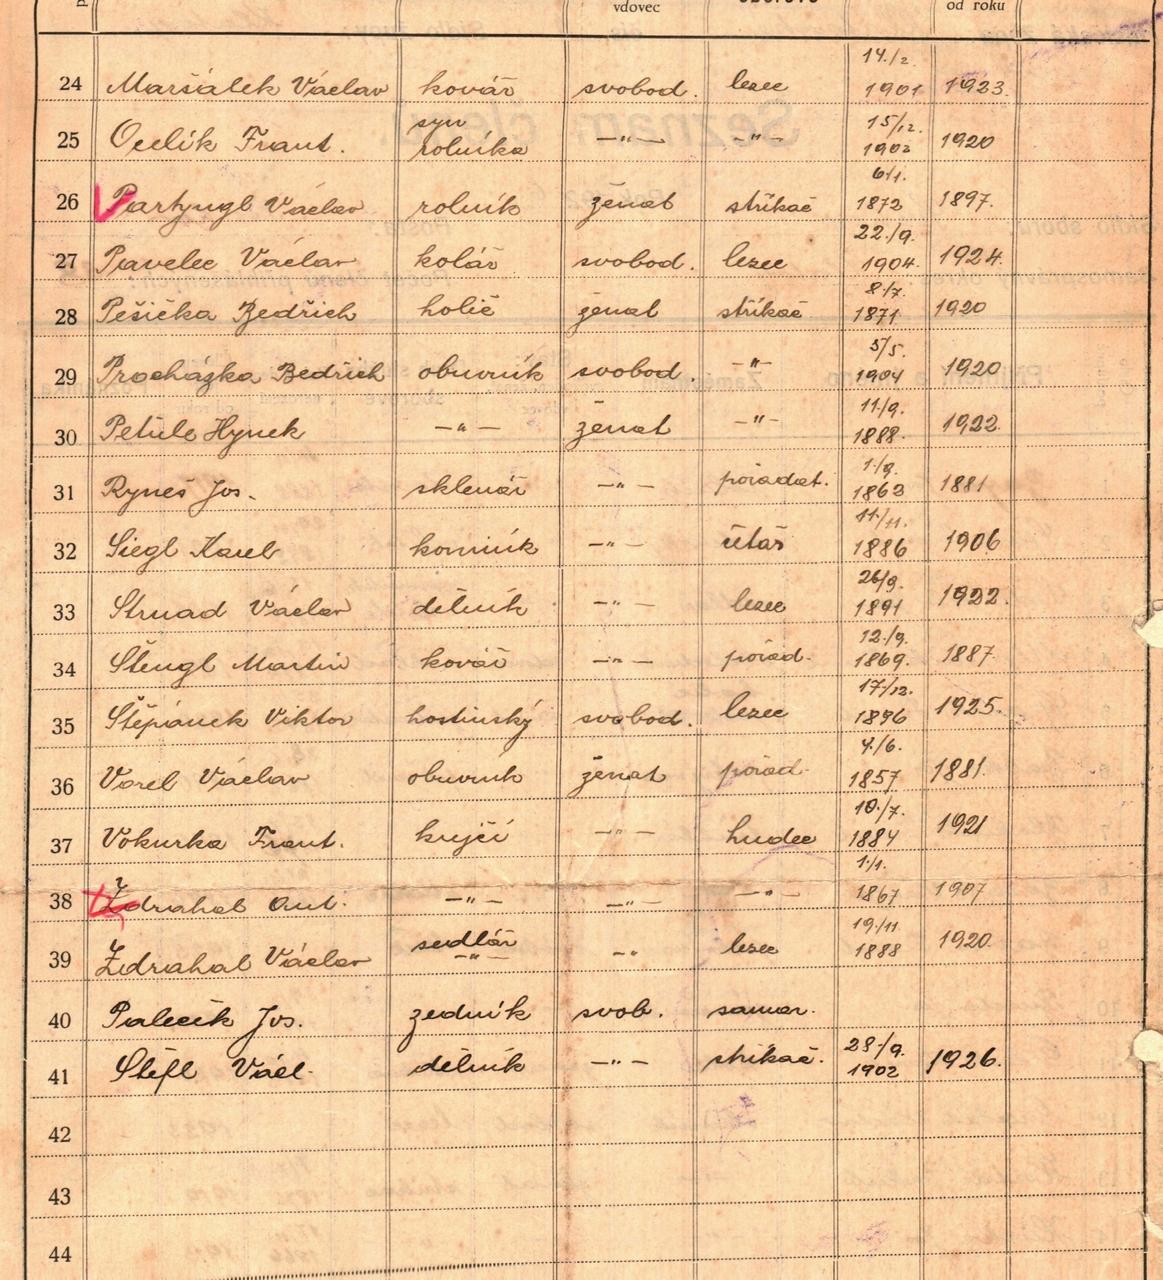 vdovec od roku
24 Maršálek Václav kovář svobod. lezec 14./2. 1901 1923.
25 Ocelík Frant. syn rolníka —"— —"— 15/12. 1902 1920
26 Partyngl Václav rolník ženat střikač 6/1. 1872 1897.
27 Pavelec Václav kolář svobod. lezec 22./9. 1904. 1924.
28 Pešička Bedřich holič ženat střikač 8./7. 1871. 1920
29 Procházka Bedřich obuvník svobod. —"— 5/5. 1904 1920
30 Petule Hynek —"— ženat —"— 11/9. 1888. 1922.
31 Ryneš Jos. sklenář —"— pořadat. 1./9. 1863 1881
32 Siegl Karel kominík —"— účtař 11./11. 1886 1906
33 Strnad Václav dělník —"— lezec 26/9. 1891 1922.
34 Štengl Martin kovář —"— pořad. 12./9. 1869. 1887.
35 Štěpánek Viktor hostinský svobod. lezec 17/12. 1896 1925.
36 Vorel Václav obuvník ženat pořad. 4./6. 1857 1881.
37 Vokurka Frant. krejčí —"— hudec 10./7. 1884 1921
38 Zdrahal Ant. —"— —"— —"— 1./1. 1867 1907
39 Zdrahal Václav sedlář —"— —"— lezec 19./11 1888 1920.
40 Palecik Jos. zedník svob. samar.
41 Štěfl Václ. dělník —"— střikač. 28/9. 1902 1926.
42
43
44